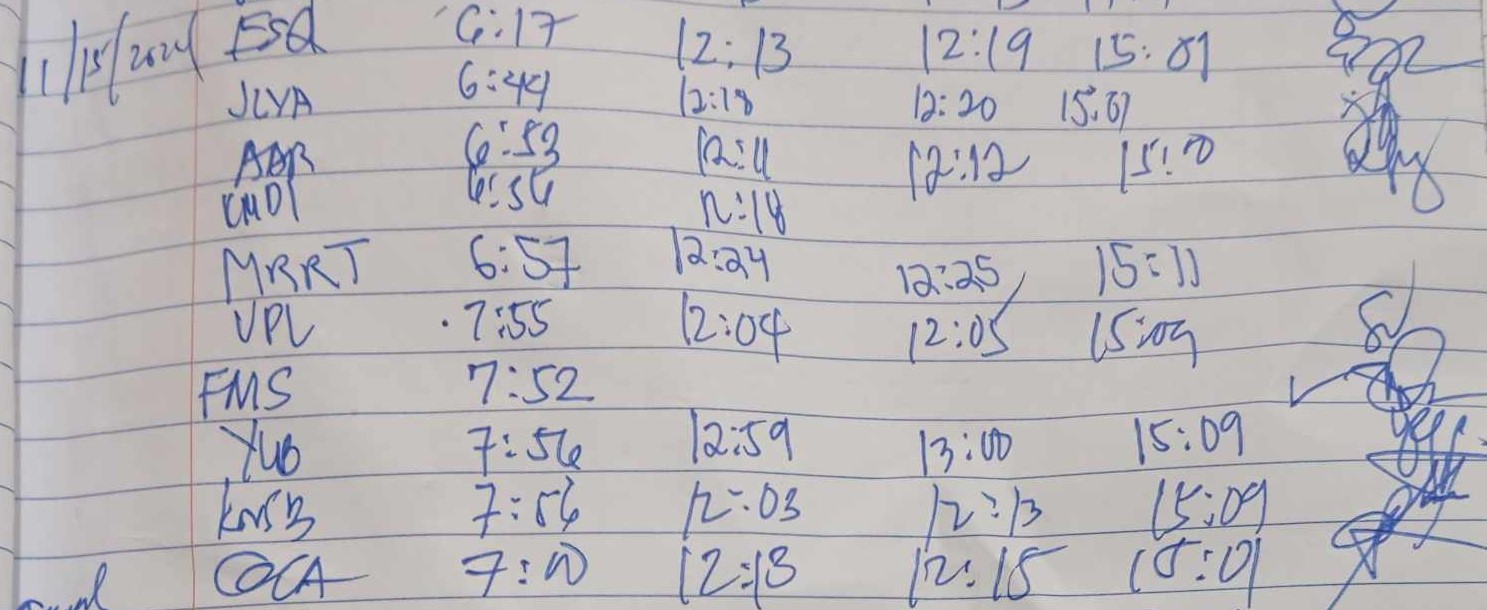 11/15/2024 ESQ 6:17 12:13 12:19 15:01
JLYA 6:44 12:18 12:20 15:01
AAR 6:53 12:11 12:12 15:10
KMDI 6:56 12:18
MRRT 6:57 12:24 12:25 15:11
VPL 7:55 12:04 12:05 15:09
FMS 7:52
YUB 7:56 12:59 13:00 15:09
KNSB 7:56 12:03 12:13 15:09
OCA 7:10 12:13 12:15 15:01